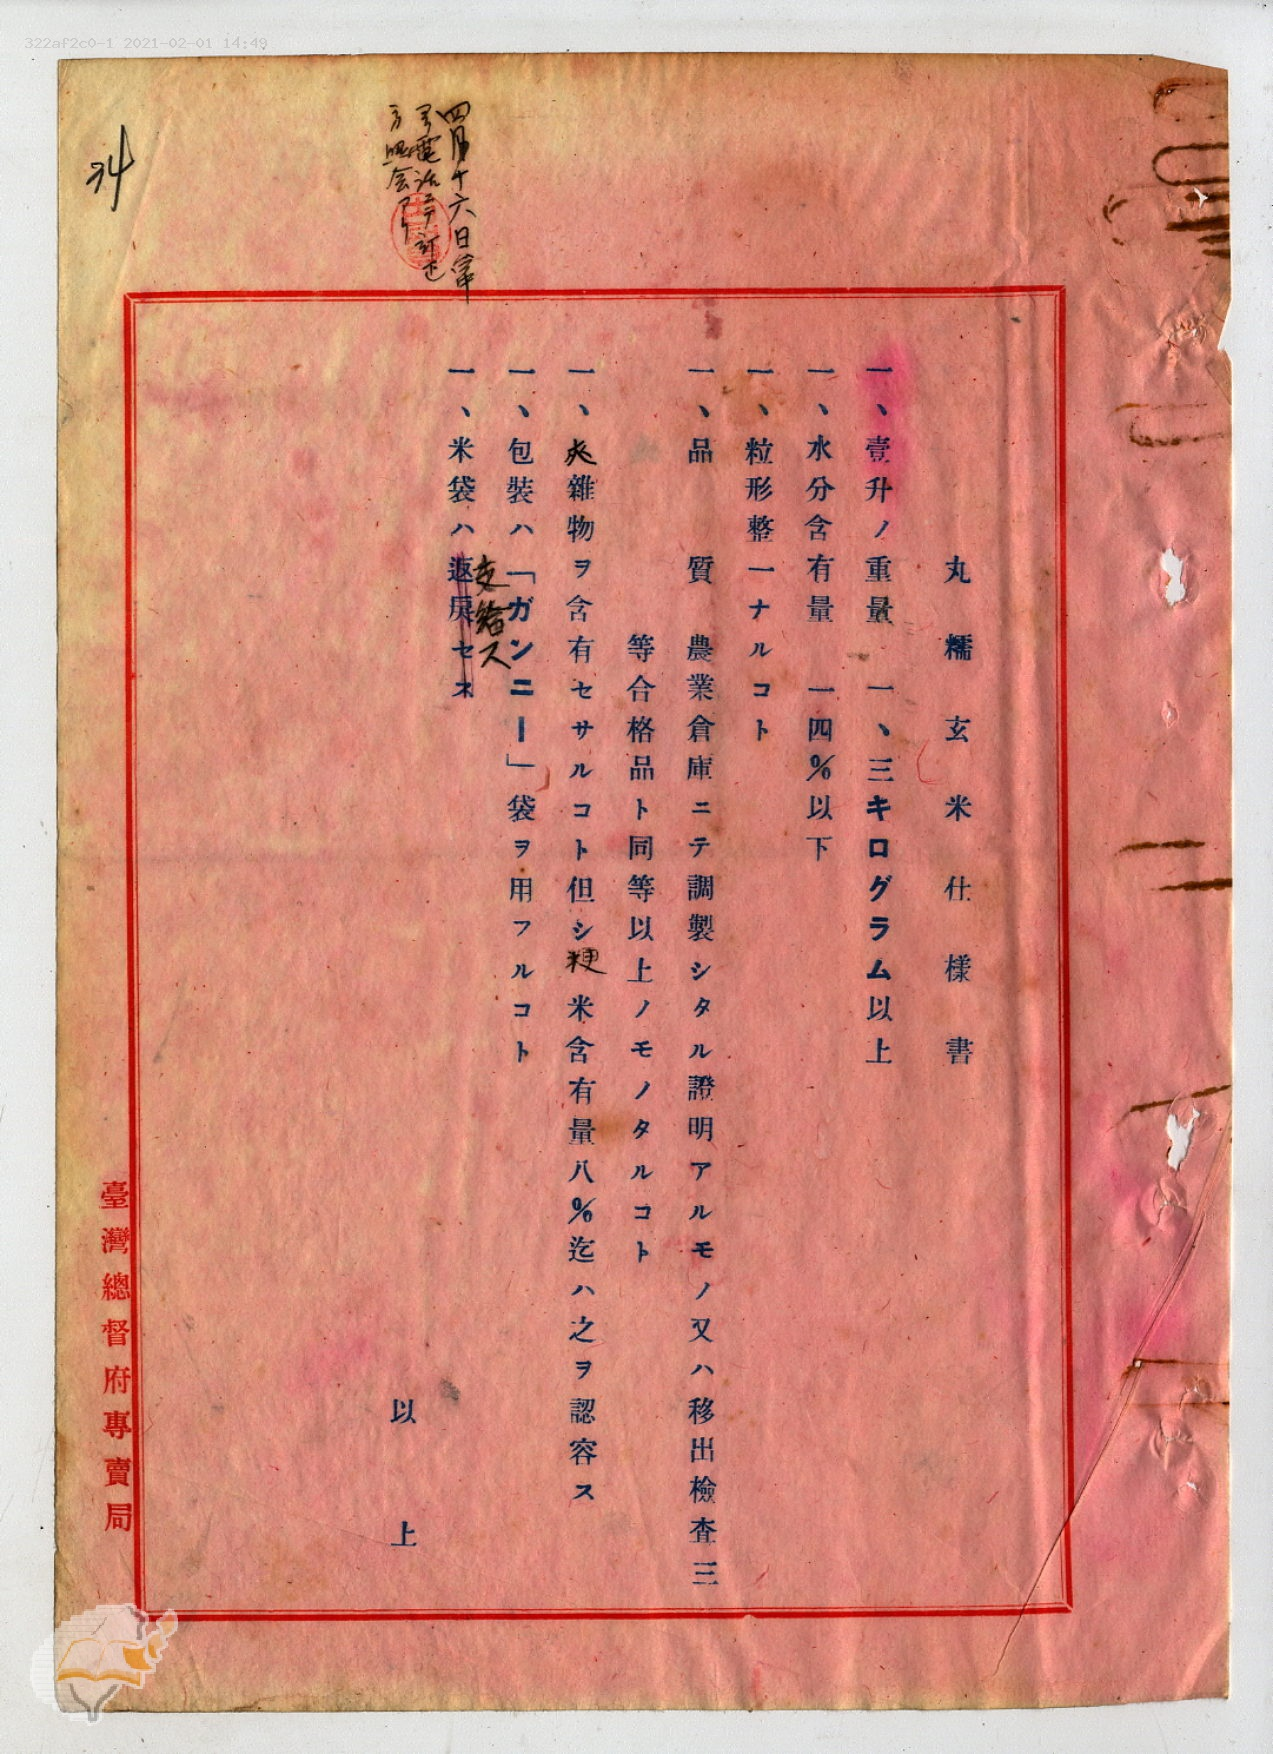 322af2c0-1 2021-02-01 14:49
四月十六日

丸糯玄米仕様書
一、壹升ノ重量 一、三キログラム以上
一、水分含有量 一四％以下
一、粒形整一ナルコト
一、品質 農業倉庫ニテ調製シタル證明アルモノ又ハ移出檢査三
等合格品ト同等以上ノモノタルコト
一、夾雜物ヲ含有セサルコト但シ粳米含有量八％迄ハ之ヲ認容ス
一、包裝ハ「ガンニー」袋ヲ用フルコト
一、米袋ハ返戾セス
支給ス
以上
臺灣總督府專賣局